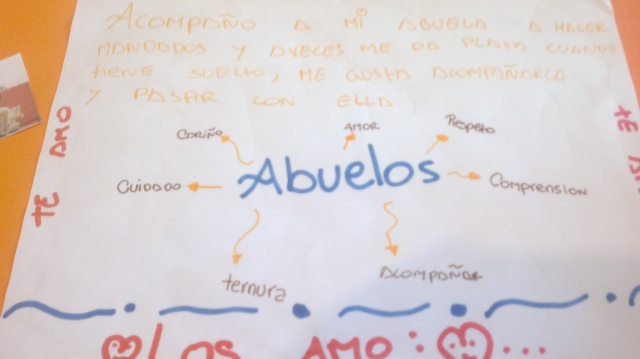 ACOMPAÑO A MI ABUELA A HACER
MANDADOS Y AVECES ME DA PLATA CUANDO
tiene SUELTO, ME GUSTA ACOMPAÑARLA
Y PASAR CON ELLA
TE AMO
CARIÑO
AMOR
Respeto
Cuidado
Abuelos
Comprension
ternura
Acompañar
los AMO: